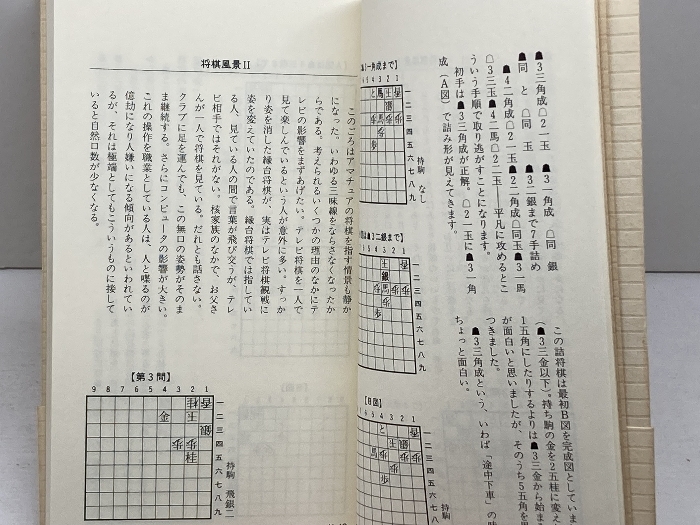 ☗3三角成☖2一玉　☗3一角成　☖同　銀
☗同　と　☖同　玉　☗3二銀まで7手詰め
☗4二角成☖2一玉☗2二角成☖同玉☗3一馬
☖3三玉☗4二馬☖2二玉──平凡に攻めるとこ
ういう手順で取り逃がすことになります。
初手は☗3三角成が正解。☖2一玉に☗3一角
成（A図）で詰み形が見えてきます。
この詰将棋は最初B図を完成図としていま
（☗3三金以下）。持ち駒の金を2五桂に変え
1五角にしたりするよりは☗3三金から始ま
が面白いと思いましたが、そのうち5五角を
つきました。
☗3三角成という、いわば「途中下車」の
ちょっと面白い。
一角成まで】
持駒　なし
☗3二銀まで】
【B図】
持駒
将棋風景Ⅱ
このごろはアマチュアの将棋を指す情景も静か
になった。いわゆる三味線をならさなくなったか
らである。考えられるいくつかの理由のなかにテ
レビの影響をまずあげたい。テレビ将棋を一人で
見て楽しんでいるという人が意外に多い。すっか
り姿を消した縁台将棋が、実はテレビ将棋観戦に
姿を変えていたのである。縁台将棋では指してい
る人、見ている人の間で言葉が飛び交うが、テレ
ビ相手ではそれがない。核家族のなかで、お父さ
んが一人で将棋を見ている。だれとも話さない。
クラブに足を運んでも、この無口の姿勢がそのま
ま継続する。さらにコンピュータの影響が大きい。
これの操作を職業としている人は、人と喋るのが
億劫になり人嫌いになる傾向があるといわれてい
るが、それは極端としてもこういうものに接して
いると自然口数が少なくなる。
【第3問】
9 8 7 6 5 4 3 2 1
一二三四五六七八九
桂香
金 玉
銀
歩歩
桂
持駒　飛銀二